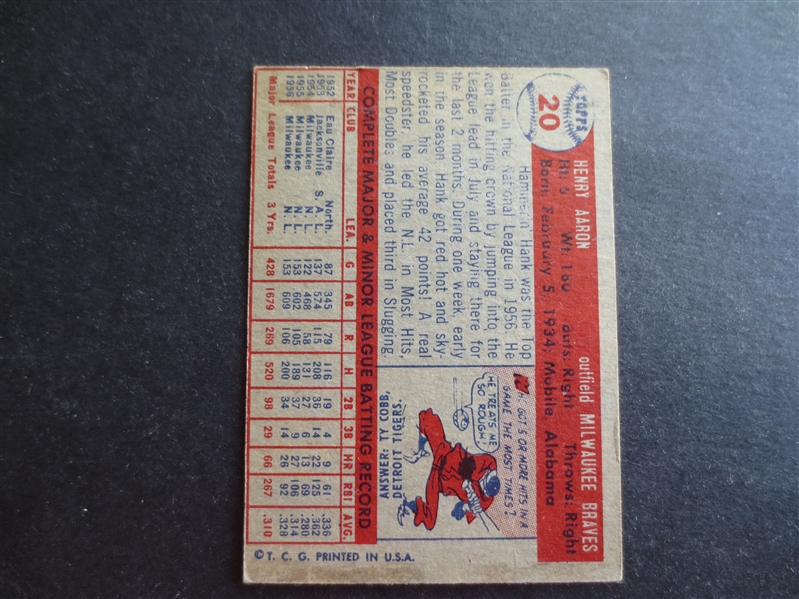 TOPPS
20
HENRY AARON outfield MILWAUKEE BRAVES
Ht: 6 Wt. 180 Bats: Right Throws: Right
Born: February 5, 1934; Mobile, Alabama
Hammerin' Hank was the Top
Batter in the National League in 1956. He
won the hitting crown by jumping into the
League lead in July and staying there for
the last 2 months. During one week, early
in the season Hank got red hot and sky-
rocketed his average 42 points! A real
speedster he led the N.L. in Most Hits,
Most Doubles and placed third in Slugging.
GOT 5 OR MORE HITS IN A
GAME THE MOST TIMES?
HE TREATS ME
SO ROUGH!
ANSWER: TY COBB,
DETROIT TIGERS.
COMPLETE MAJOR & MINOR LEAGUE BATTING RECORD
YEAR CLUB LEA. G AB R H 2B 3B HR RBI AVG.
1952 Eau Claire North. 87 345 79 116 19 4 9 61 .336
1953 Jacksonville S. A. L. 137 574 115 208 36 14 22 125 .362
1954 Milwaukee N. L. 122 468 58 131 27 6 13 69 .280
1955 Milwaukee N. L. 153 602 105 189 37 9 27 106 .314
1956 Milwaukee N. L. 153 609 106 200 34 14 26 92 .328
Major League Totals 3 Yrs. 428 1679 269 520 98 29 66 267 .310
© T. C. G. PRINTED IN U.S.A.